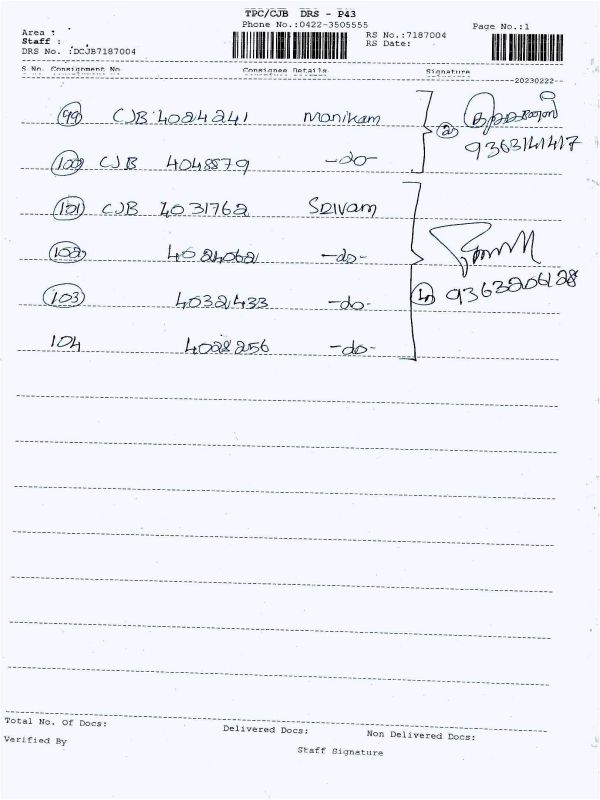 TPC/CJB DRS - P43
Phone No.:0422-3505555
Area :
Staff :
DRS No. :DCJB7187004
RS No.:7187004
RS Date:
Page No.:1
S No. Consignment No Consignee Details Signature
20230222
99 CJB 4024241 Manikam
2 9363141417
100 CJB 4048879 -do-
101 CJB 4031762 Srivam
102 4024062 -do-
103 40321433 -do- 4 9363206128
104 4028256 -do-
Total No. Of Docs: Delivered Docs: Non Delivered Docs:
Verified By Staff Signature